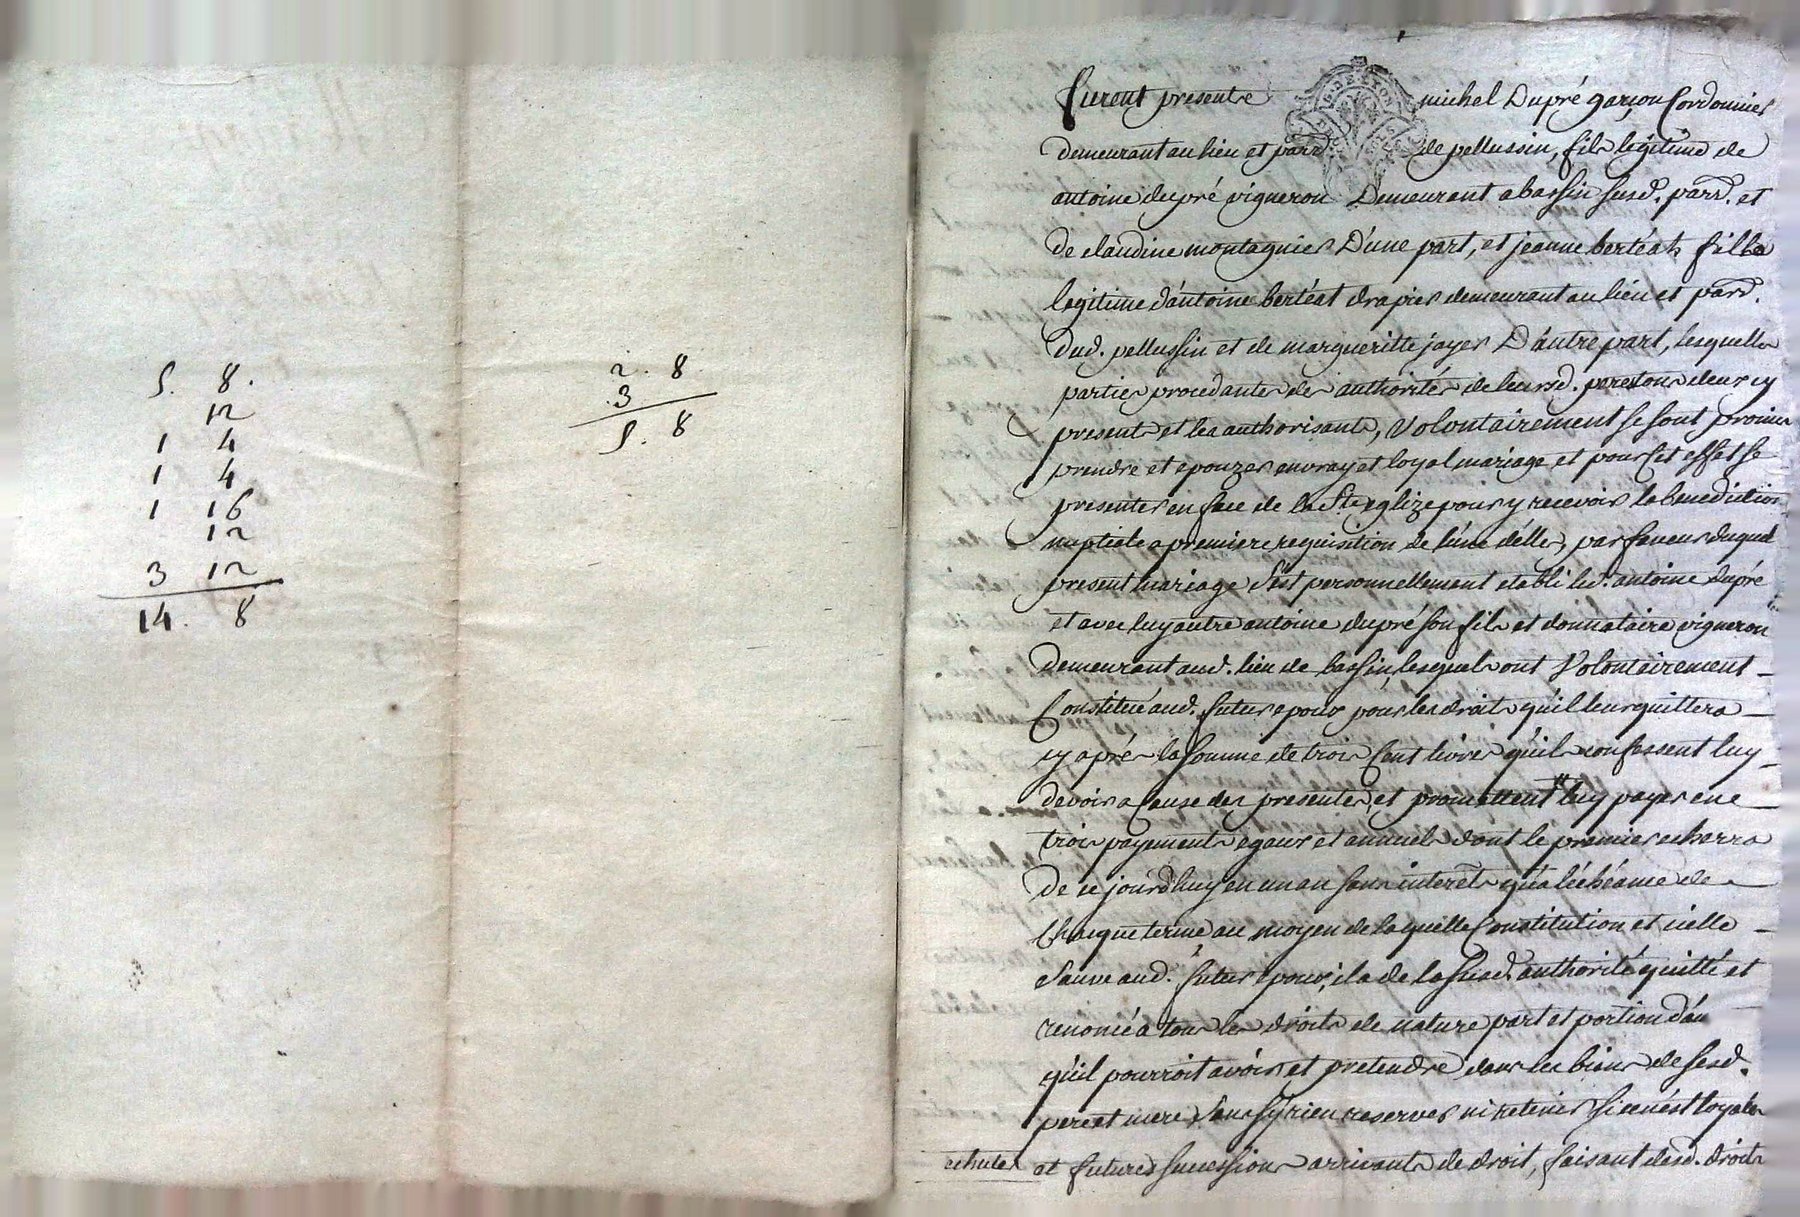 5. 8.
12
1 4
1 4
1 16
12
3 12
14. 8
2. 8
.3
5. 8
furent presents michel Dupré garçon Cordonnier
demeurant au lieu et parr. de pellussin, fils légitime de
antoine dupré vigneron Demeurant a bassin susd. parr. et
de claudine montagnier D'une part, et jeanne bertéat fille
legitime d'antoine bertéat drapier demeurant au lieu et parr.
dud. pellussin et de margueritte jayer D'autre part, lesquelles
parties procedantes de authorité de leursd. peres tous deux cy
presents et les authorisants, Volontairement se sont promis
prendre et epouzer en vray et loyal mariage et pour cet effet se
presenter en face de la Ste eglize pour y recevoir la benediction
nuptiale a premiere requisition de l'une d'elles, par faveur duquel
present mariage s'est personnellement etabli led. antoine dupré
et avec luy autre antoine dupré son fils et donnataire vigneron
demeurant aud. lieu de bassin, lesquels ont Volontairement
Constitué aud. futur epoux pour les droits qu'il leur quittera
cy aprés la somme de trois Cent livres qu'ils confessent luy
devoir a Cause des presentes, et promettent luy payer en
trois payements egaux et annuels dont le premier echerra
de ce jourd'huy en un an sans interets qu'a l'échéance de
Chaque terme au moyen de laquelle Constitution et icelle
sauve aud. futur epoux, il a de la susd. authorité quitté et
renoncé a tous les droits de nature part et portion d'an
qu'il pourroit avoir et pretendre dans les biens de sesd.
pere et mere sans s'y rien reserver ni retenir si ce n'est loyales
echutes et futures succession arrivants de droit, faisant desd. droits